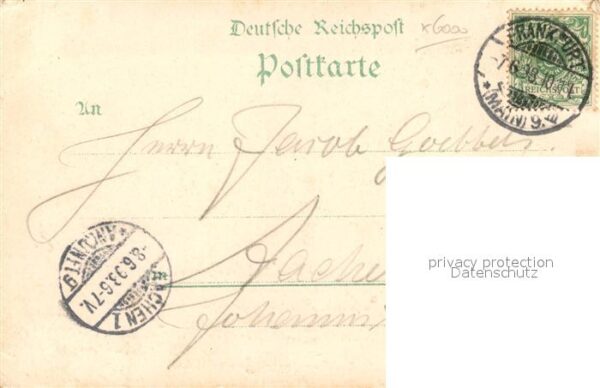 Deutsche Reichspost x6000
Postkarte
FRANKFURT
(MAIN) 9.
REICHSPOST
An
Herrn Jacob Goebbels
privacy protection
Datenschutz
ANKUNFT
-8.6.93.6-7V.
AACHEN 1
in Aachen